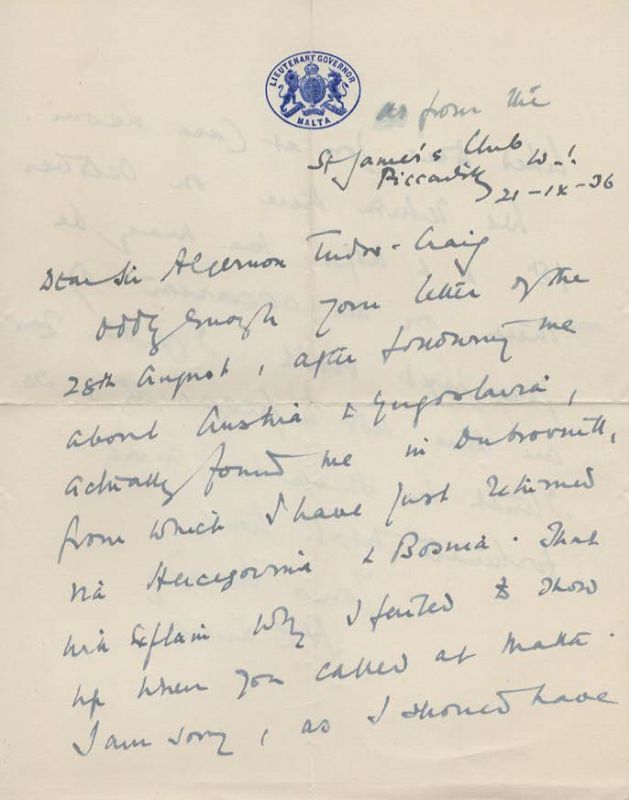 LIEUTENANT GOVERNOR
MALTA
as from the
St James's Club
Piccadilly W.1
21-IX-36
Dear Sir Algernon Tudor-Craig
Oddly enough your letter of the
28th August, after following me
about Austria & Yugoslavia,
actually found me in Dubrovnik,
from which I have just returned
via Hercegovina & Bosnia. That
will explain why I failed to show
up when you called at Malta.
I am sorry, as I should have